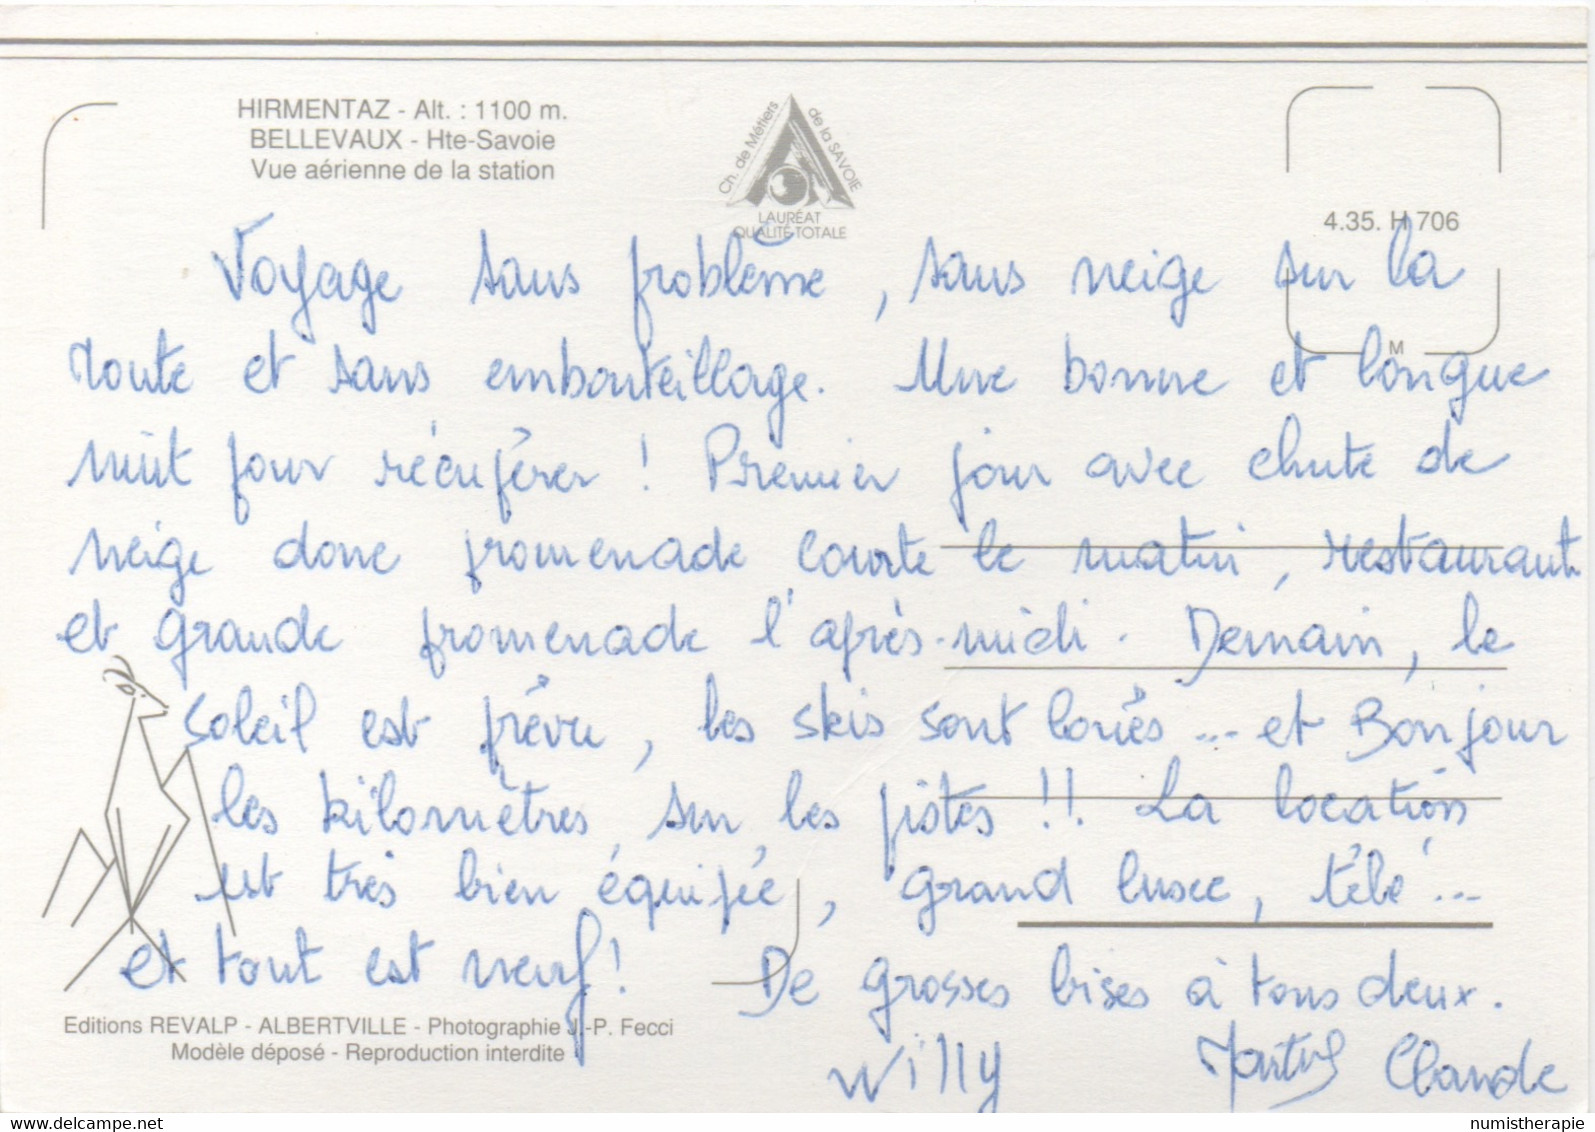 HIRMENTAZ - Alt. : 1100 m.
BELLEVAUX - Hte-Savoie
Vue aérienne de la station
Ch. de Métiers de la SAVOIE
LAURÉAT
QUALITÉ TOTALE
4.35. H 706
M
Voyage sans problème, sans neige sur la
route et sans embouteillage. Une bonne et longue
nuit pour récupérer ! Premier jour avec chute de
neige donc promenade courte le matin, restaurant
et grande promenade l'après-midi. Demain, le
soleil est prévu, les skis sont loués ... et Bonjour
les kilomètres sur les pistes !!! La location
est très bien équipée, grand luxe, télé ...
et tout est neuf ! De grosses bises à tous deux.
Willy Claude
Editions REVALP - ALBERTVILLE - Photographie J.-P. Fecci
Modèle déposé - Reproduction interdite
delcampe.net
numistherapie